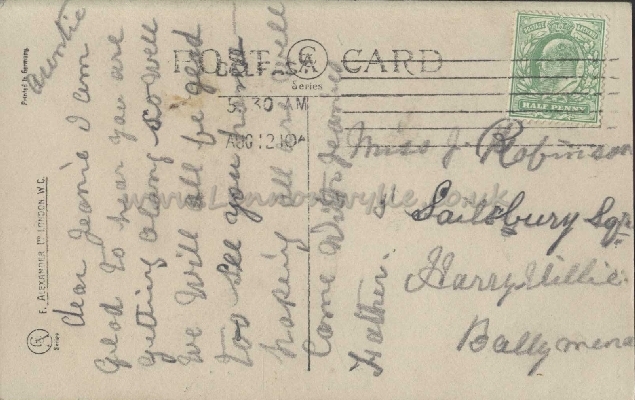 POST CARD
Series
BELFAST
5.30 AM
AUG 12 10
HALF PENNY
Printed in Germany
F. ALEXANDER, LONDON, W.C.
Series
Auntie
Dear Jeanie I am
glad to hear you are
getting along so well
we will all be glad
too see you home
hoping all are well
Come With Jeanie
Father.
Miss J Robinson
Sailsbury Sqr
HarryVillie.
Ballymena
www.Lennonwylie.co.uk